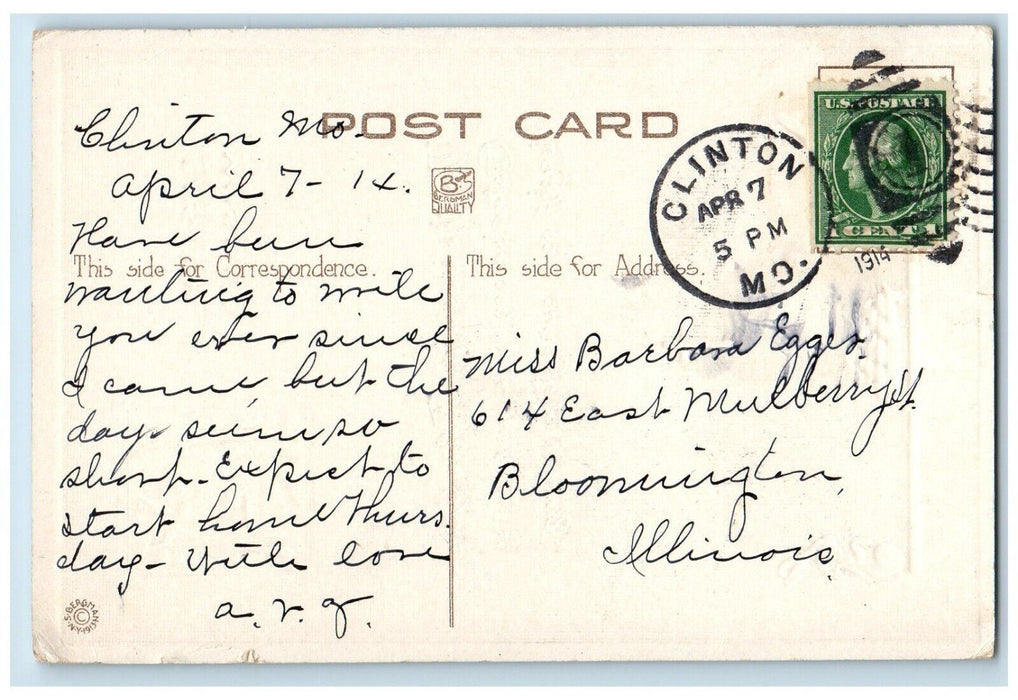 POST CARD
Clinton Mo.
April 7-14.
Have been
This side for Correspondence.
wanting to write
you ever since
I came, but the
days seem so
short. Expect to
start home Thurs.
day- With love
a.v.g.
B
BERGMAN
QUALITY
CLINTON
APR 7
5 PM
MO.
1914
U.S. POSTAGE
1 CENT 1
This side for Address.
Miss Barbara Egger.
614 East Mulberry St.
Bloomington,
Illinois
S. BERGMAN N.Y. 1913 ©